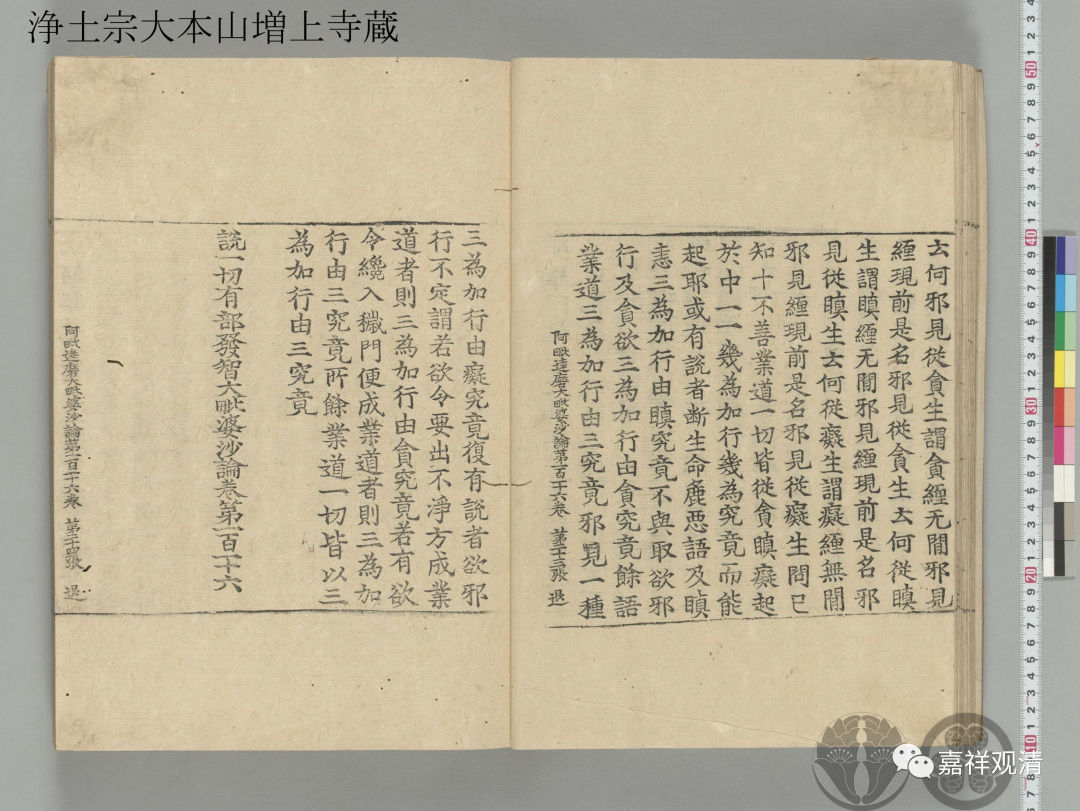 浄土宗大本山増上寺蔵
云何邪見從貪生謂貪纏无間邪見
纏現前是名邪見從貪生云何從瞋
生謂瞋纏无間邪見纏現前是名邪
見從瞋生云何從癡生謂癡纏無間
邪見纏現前是名邪見從癡生問已
知十不善業道一切皆從貪瞋癡起
於中一一幾為加行幾為究竟而能
起耶或有說者断生命麁惡語及瞋
恚三為加行由瞋究竟不與取欲邪
行及貪欲三為加行由貪究竟餘語
業道三為加行由三究竟邪見一種
阿毗達磨大毗婆沙論第一百一十六卷 第二十三張 退
三為加行由癡究竟復有說者欲邪
行不定謂若欲令要出不淨方成業
道者則三為加行由貪究竟若有欲
令纔入穢門便成業道者則三為加
行由三究竟所餘業道一切皆以三
為加行由三究竟
說一切有部發智大毗婆沙論卷第一百一十六
阿毗達磨大毗婆沙論第一百一十六卷 第二十四張 退
嘉祥观清